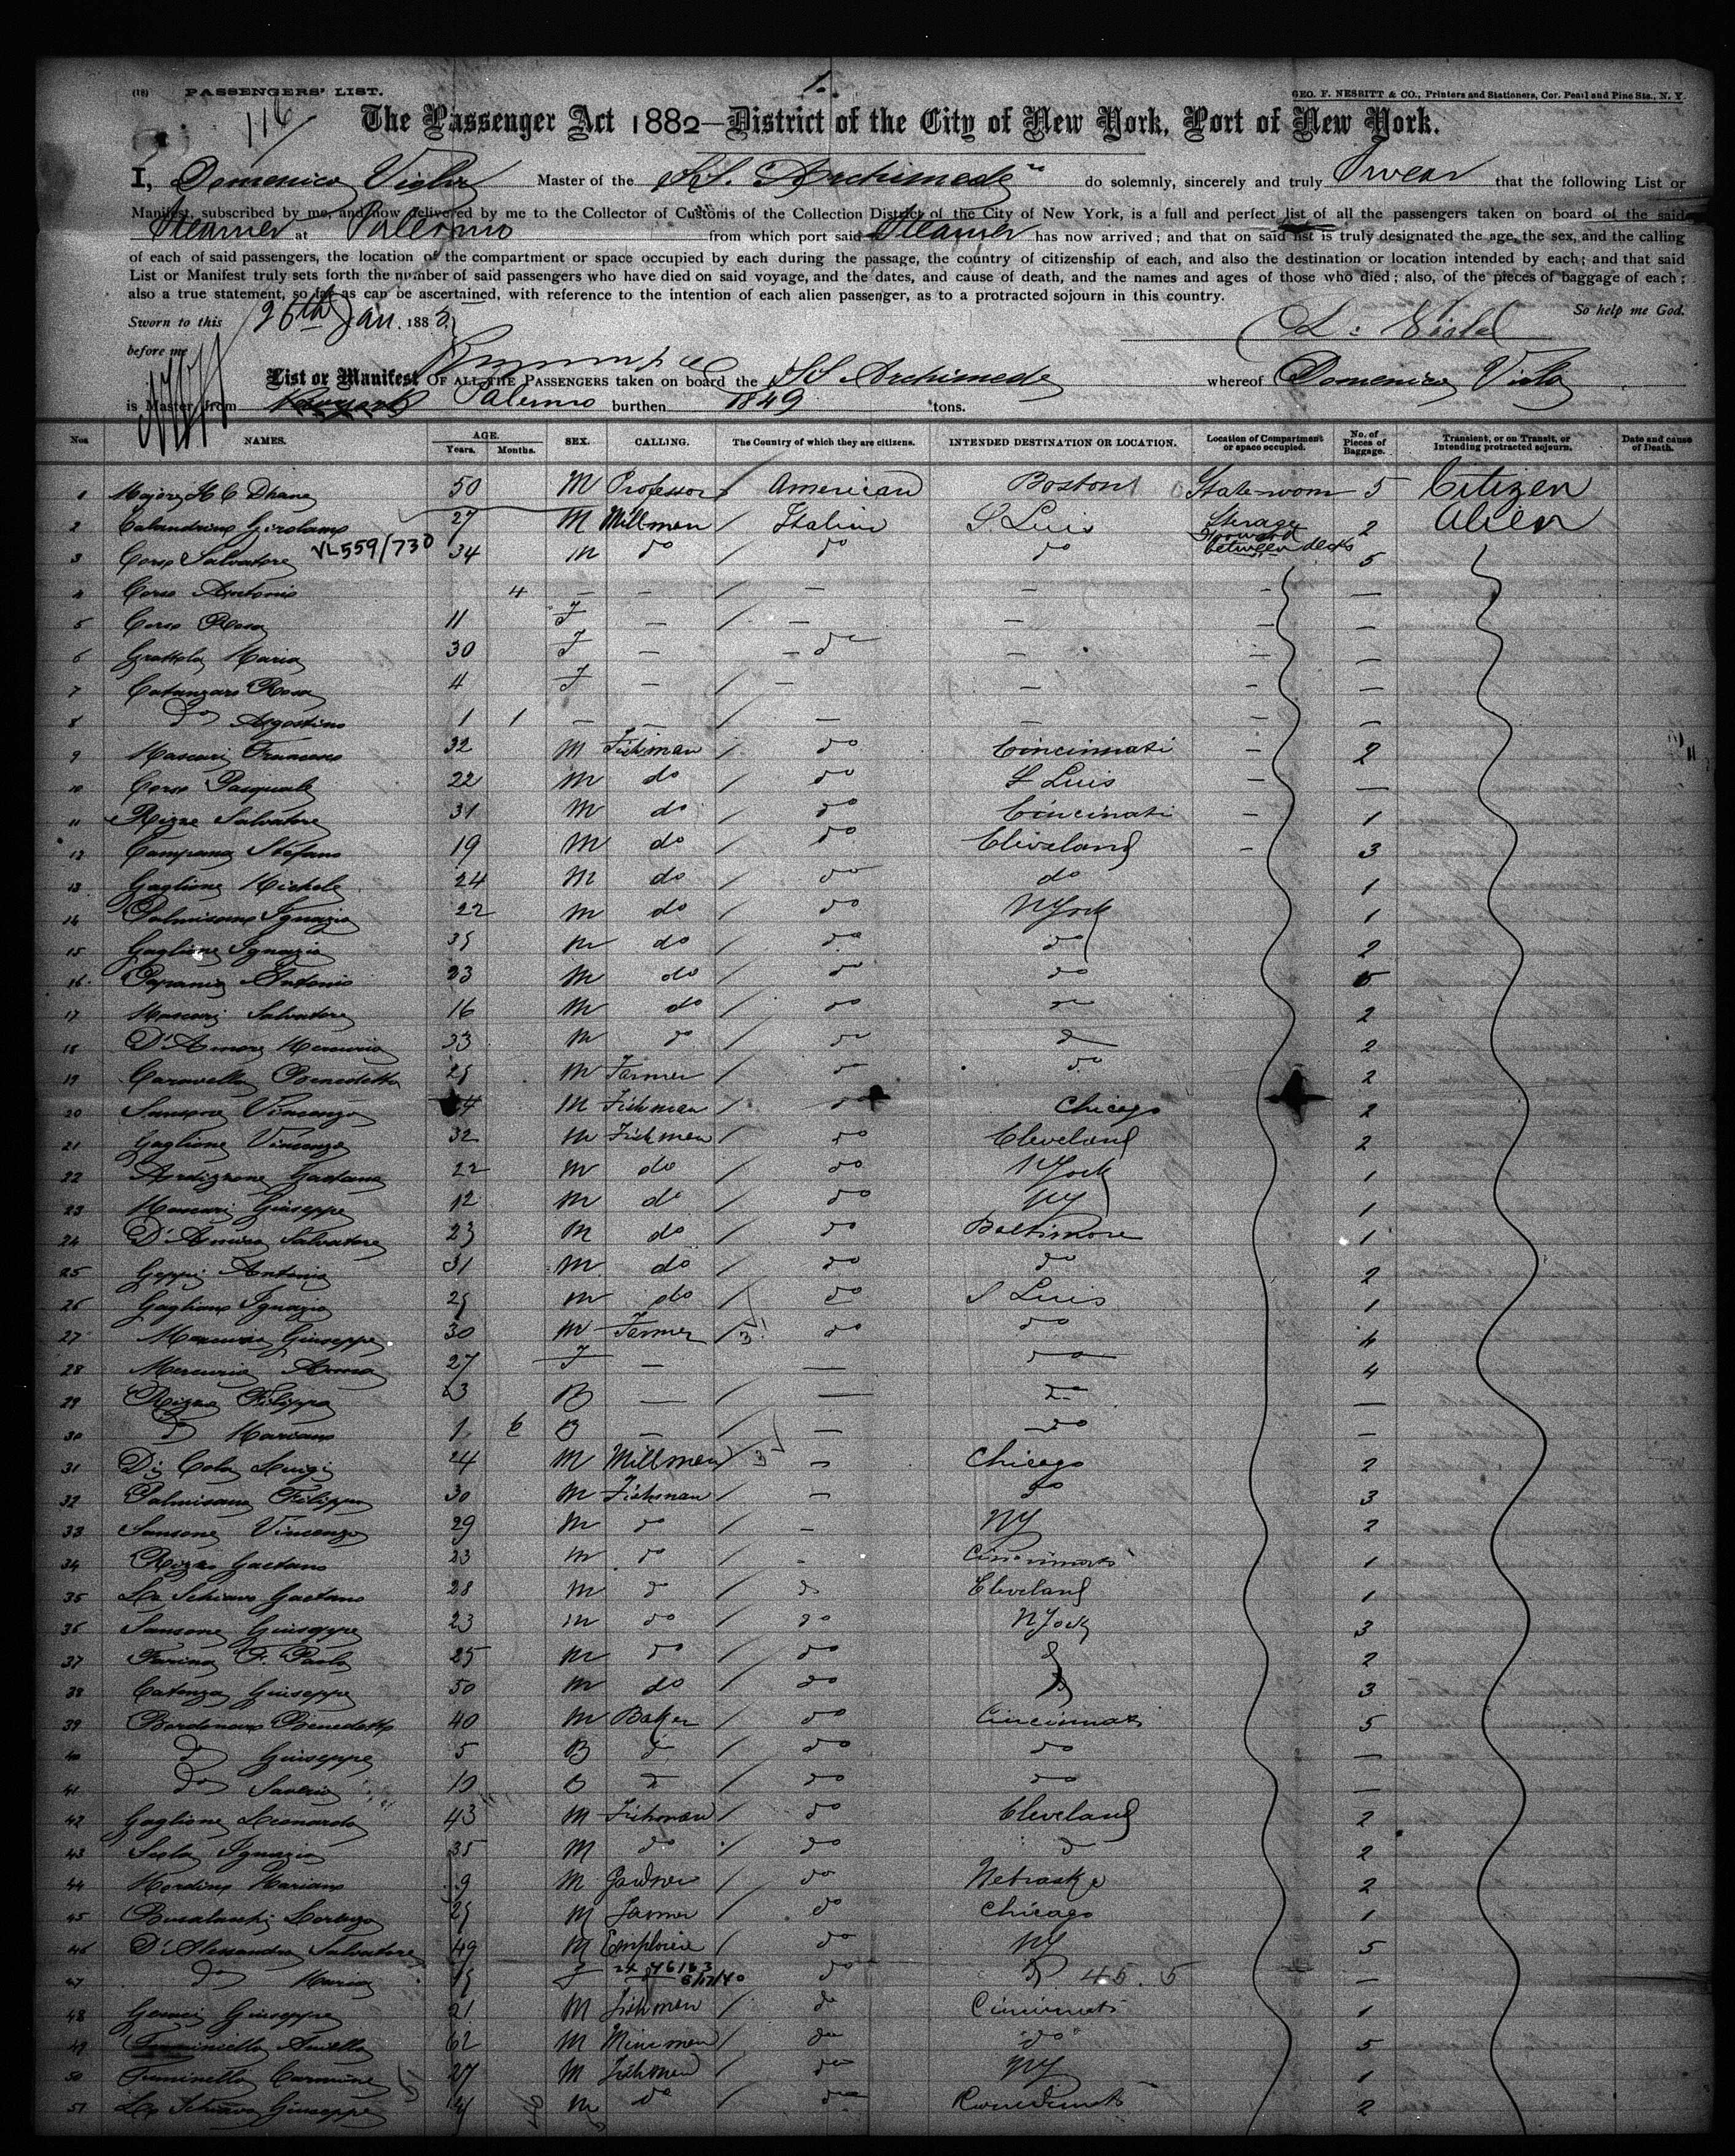 (18) PASSENGERS' LIST.
1.
GEO. F. NESBITT & CO., Printers and Stationers, Cor. Pearl and Pine Sts., N. Y.
116
The Passenger Act 1882—District of the City of New York, Port of New York.
I, Domenico Viola Master of the S.S. Archimede do solemnly, sincerely and truly Swear that the following List or
Manifest, subscribed by me, and now delivered by me to the Collector of Customs of the Collection District of the City of New York, is a full and perfect list of all the passengers taken on board of the said
Steamer at Palermo from which port said Steamer has now arrived; and that on said list is truly designated the age, the sex, and the calling
of each of said passengers, the location of the compartment or space occupied by each during the passage, the country of citizenship of each, and also the destination or location intended by each; and that said
List or Manifest truly sets forth the number of said passengers who have died on said voyage, and the dates, and cause of death, and the names and ages of those who died; also, of the pieces of baggage of each;
also a true statement, so far as can be ascertained, with reference to the intention of each alien passenger, as to a protracted sojourn in this country.
So help me God.
Sworn to this 26th Jan. 188
D. Viola
before me
List or Manifest OF ALL THE PASSENGERS taken on board the SS Archimede whereof Domenico Viola
is Master, from Palermo burthen 1849 tons.
Nos NAMES. AGE. Years. Months. SEX. CALLING. The Country of which they are citizens. INTENDED DESTINATION OR LOCATION. Location of Compartment or space occupied. No. of Pieces of Baggage. Transient, or on Transit, or Intending protracted sojourn. Date and cause of Death.
1 H C 50 M Professor / American Boston State-room 5 Citizen
2 Calandrino Girolamo 27 M Millman / Italian S Luis Sterage forward between decks 2 Alien
3 Corso Salvatore VL559/730 34 m do / do do 5
4 Corso Antonio 4 — — — — - —
5 Corso Rosa 11 F — / — — — —
6 Maria 30 F — — do — — —
7 Catanzaro Rosa 4 F — / — — - —
8 do Agostino 1 1 — — / — — — —
9 Mascari Francesco 32 M Fishman / do Cincinnati — 2
10 Corso Pasquale 22 M do / do S Luis — —
11 Rizzo Salvatore 31 M do / do Cincinati — 1
12 Campana Stefano 19 M do / do Cleveland — 3
13 Gaglione Michele 24 M do / do do 1
14 Palmisano Ignazio 22 M do / do NYork 1
15 Gaglione Ignazio 35 m do / do do 2
16 Papania Antonio 23 M do / do do 5
17 Mascari Salvatore 16 M do / do do 2
18 D'Amore Mercurio 33 M do / do do 2
19 Caravella Benedetto M Farmer / do do 2
20 Sansone Vincenzo M Fishman / do Chicago 2
21 Gaglione Vincenzo 32 M Fishman / do Cleveland 2
22 Ardizzone Gaetano 22 M do / do NYork 1
23 Mascari Giuseppe 12 M do / do NY 1
24 D'Amico Salvatore 23 M do / do Baltimore 1
25 Geppi Antonio 31 M do / do do 2
26 Gagliano Ignazio M do / do S Luis 1
27 Giuseppe 30 M Farmer / 3 do do 4
28 Mercurio Anna 27 F — / — do 4
29 Rizzo Filippo B — / — do —
30 do Mariano 1 6 B — / — do —
31 Di Cola Luigi 24 M Millman / 3 - Chicago 2
32 Palmisano Filippo 30 M Fishman / - do 3
33 Sansone Vincenzo 29 M do / - NY 2
34 Rizzo Gaetano 23 M do / - Cincinnati 1
35 Lo Schiavo Gaetano 28 M do / do Cleveland 1
36 Sansone Giuseppe 23 m do / do NYork 3
37 Farina F. Paolo 25 M do / do do 2
38 Giuseppe 50 M do / do do 3
39 Bordonaro Benedetto 40 M Baker / do Cincinnati 5
40 do Giuseppe 5 B do / do do —
41 do Saverio 10 B do / do do —
42 Gaglione Leonardo 43 M Fishman / do Cleveland 2
43 Ignazio 35 M do / do do 2
44 Mariano 9 M Gardner / do Nebraska 2
45 Busalacchi Lorenzo M Farmer / do Chicago 1
46 D'Alessandro Salvatore 49 M Emploiee / do NY 5
47 do Maria F 8/17/40 do do 45. 5 —
48 Giuseppe 21 M Fishman / do Cincinnati 1
49 Aniello 62 M Mineman / do do 5
50 Carmine 27 M Fishman / do NY 1
51 Lo Schiavo Giuseppe M do / do 2